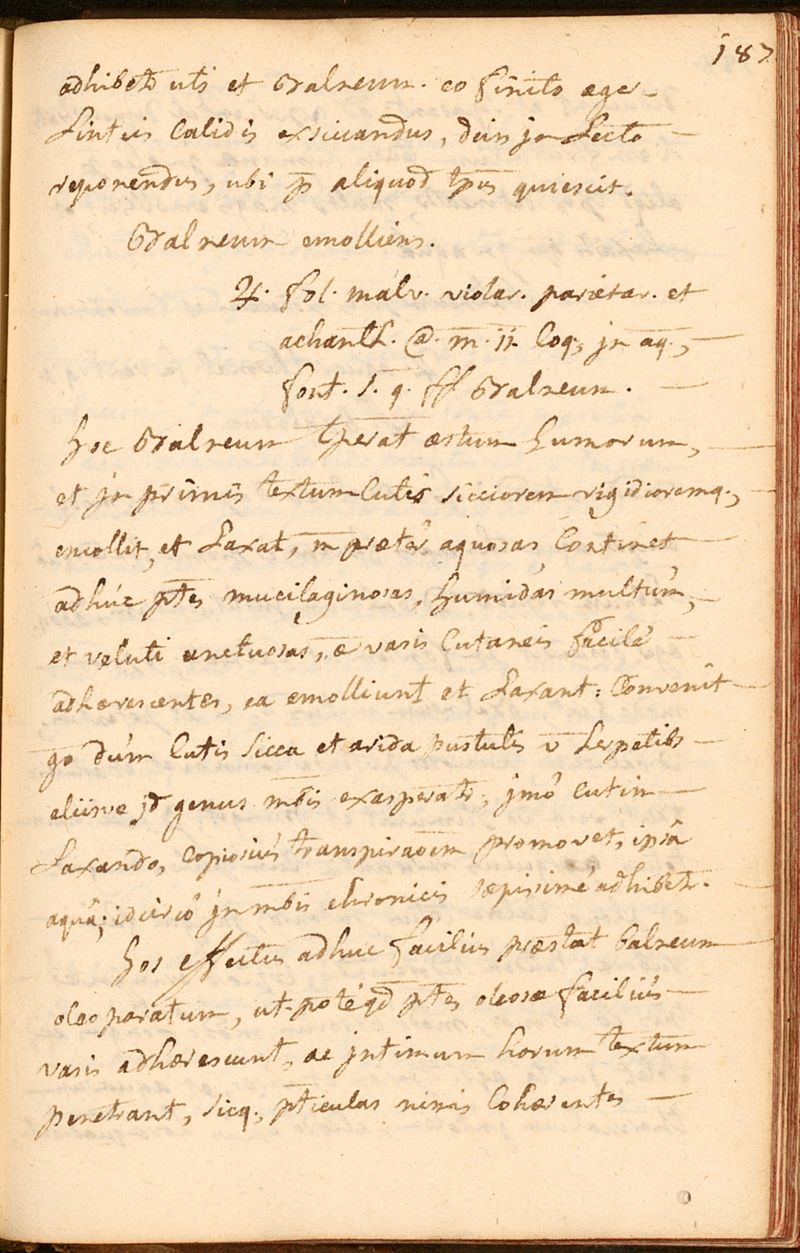 187
adhibetr uti et Balneum. eo finito æger
Linteis Calidis exsiccandus, dein jn Lecto
reponendus, ubi p̄ aliquod tp̄us quiescit.
Balneum emolliens.
♃. fol. malv. violar. parietar. et
achanth. @. m. ij. Coq; jn aq.,
font. s. q. ff Balneum.
hoc Balneum tp̄erat æstum humorum,
et jn primis textum Cutis sicciorem rigidioremq.,
emollit, et Laxat, n̄ præter aquosas, Continet
adhúc ptes mucilaginosas, humidas multùm,
et veluti unctuosas, æ vasis Cutaneis facilè
adhærescentes, ea emolliunt et Laxant: Convenit
go dùm Cutis sicca et arida pustulis v̄ herpetibs
aliisve jd genus mbis exasperatr, jmò cutim
Laxando, copiosiús transpiraōem promovet, ipsâ
aquâ; idcircò jn mbis chronicis sæpissimè adhibetr.
hos effectus adhuc facilius præstat balneum
oleo paratum, ut-potè qd ptes oleosæ faciliús
vasis adhærescunt, ac jntimum horum textum
penetrant, sicq., pticulas nimis Cohærentes